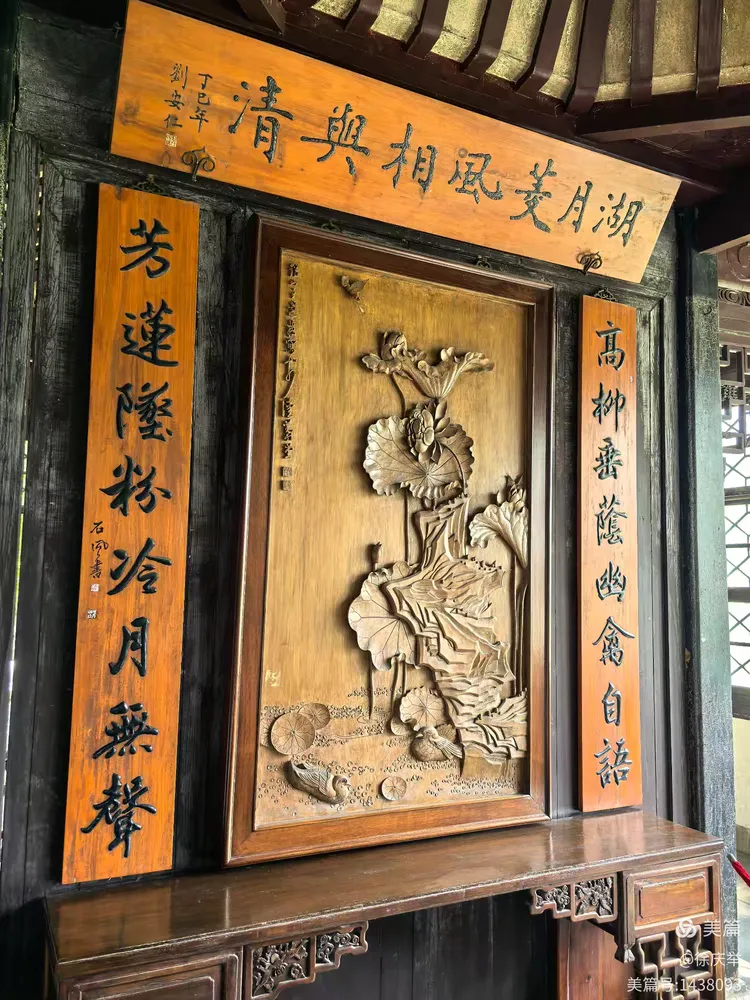 湖月菱風相與清
丁巳年
劉安仁
高柳垂蔭幽禽自語
芳蓮墜粉冷月無聲
石風書
美篇
@徐庆举
美篇号:1438093